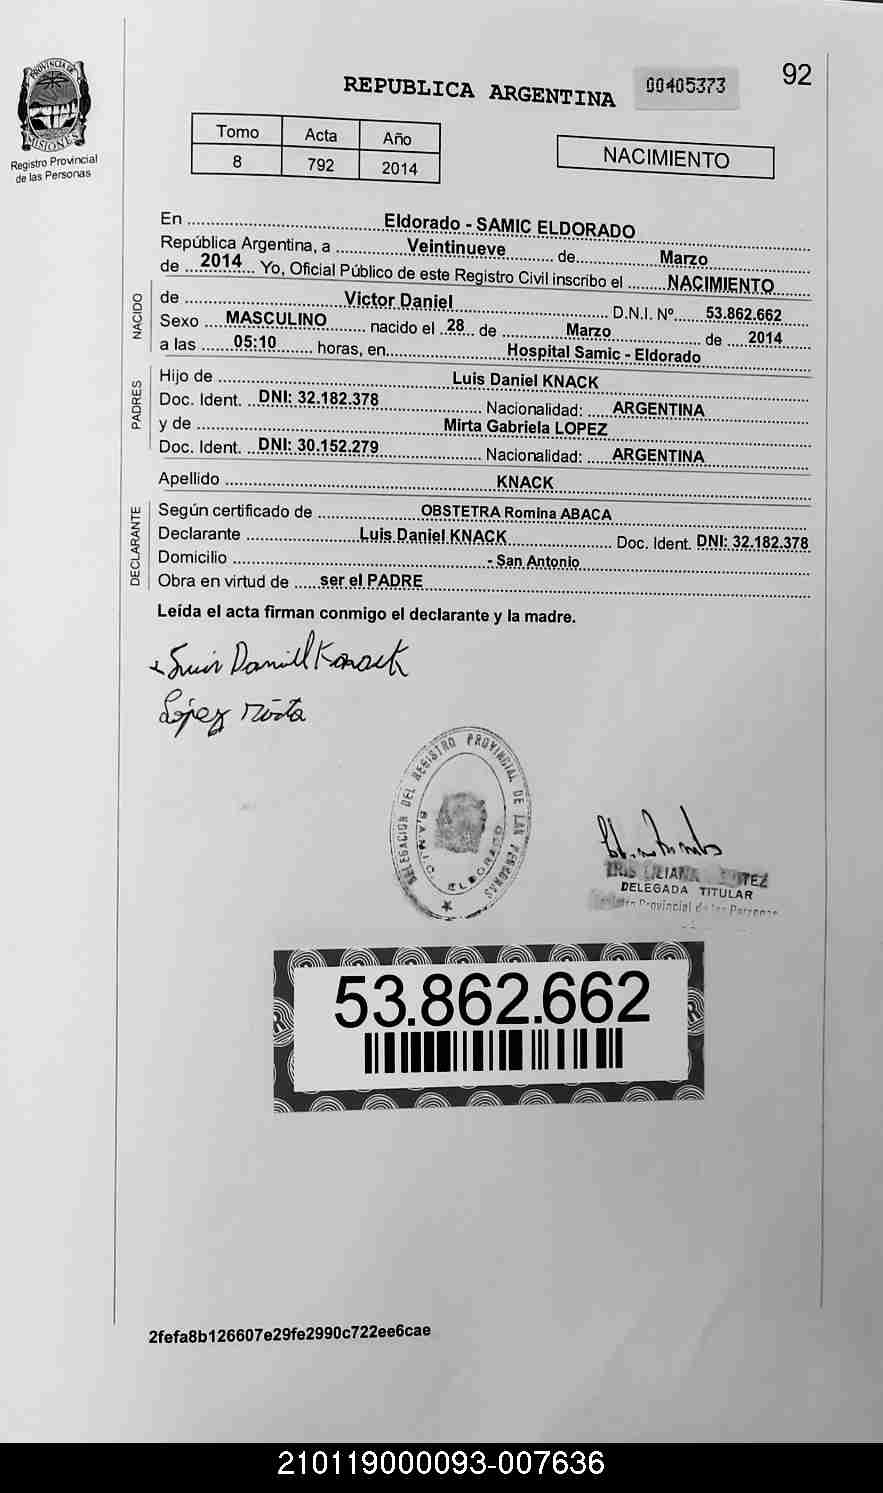 PROVINCIA DE
MISIONES
Registro Provincial
de las Personas
REPUBLICA ARGENTINA
00405373
92
Tomo Acta Año
8 792 2014
NACIMIENTO
En Eldorado - SAMIC ELDORADO
República Argentina, a Veintinueve de Marzo
de 2014 Yo, Oficial Público de este Registro Civil inscribo el NACIMIENTO
NACIDO
de Victor Daniel D.N.I. Nº 53.862.662
Sexo MASCULINO nacido el 28 de Marzo de 2014
a las 05:10 horas, en Hospital Samic - Eldorado
PADRES
Hijo de Luis Daniel KNACK
Doc. Ident. DNI: 32.182.378 Nacionalidad: ARGENTINA
y de Mirta Gabriela LOPEZ
Doc. Ident. DNI: 30.152.279 Nacionalidad: ARGENTINA
Apellido KNACK
DECLARANTE
Según certificado de OBSTETRA Romina ABACA
Declarante Luis Daniel KNACK Doc. Ident. DNI: 32.182.378
Domicilio - San Antonio
Obra en virtud de ser el PADRE
Leída el acta firman conmigo el declarante y la madre.
Luis Daniel Knack
López Mirta
DELEGACION DEL REGISTRO PROVINCIAL DE LAS PERSONAS
S.A.M.I.C. ELDORADO
IRIS LILIANA
DELEGADA TITULAR
Registro Provincial de las Personas
53.862.662
2fefa8b126607e29fe2990c722ee6cae
210119000093-007636